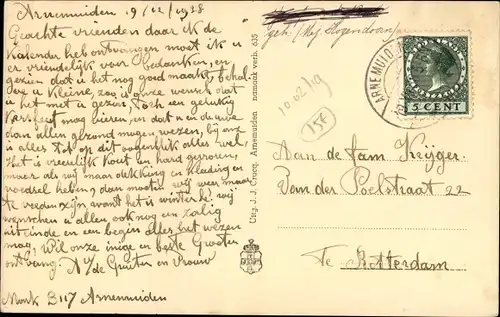 Arnemuiden 19/12/1938
Geachte vrienden daar ik de
Kalender heb ontvangen moet ik u
er vriendelijk voor bedanken, en
gezien dat u het nog goed maakt, behal-
ve u Kleine, zoo is onze wensch dat
u het met u gezin, toch een gelukkig
Kerstfeest mag vieren, en dat u en de uwe
dan allen gezond mogen wezen, bij ons
is alles tot op dit oogenblik alles wel.
Het is vreeselijk Kout en hard gevroren,
maar als wij maar dekking en Kleeding en
voedsel hebben, dan moeten wij weer maar
te vreden zijn want het is winter he, wij
wenschen u allen ook nog een zalig
uiteinde en een begin alles het wezen
mag, Wil onze innige en beste Groeten
ontvang. A. de Gruiter en Vrouw
Monk B117 Arnemuiden
Uitg. J. J. Crucq, Arnemuiden namaak verb. 635
ARNEMUIDEN
NEDERLAND
5 CENT
10.02/19
15F
Aan de fam Kruijger.
Van der Poelstraat 22
Te Rotterdam